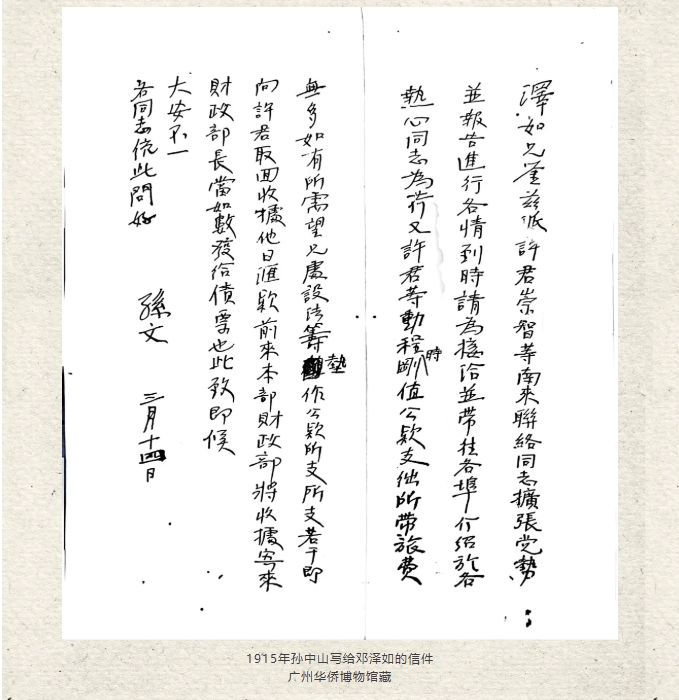 澤如兄鉴兹派許君崇智等南來聯絡同志擴張党勢
並報告進行各情到時請為接洽並帶往各埠介绍於各
熱心同志為荷又許君等動程時剛值公欵支绌所帶旅費
無多如有所需望兄處設法籌墊作公欵所支所支若干即
向許君取回收據他日滙欵前來本部財政部將收據寄來
財政部長當如數發给債票也此致即候
大安不一
各同志统此問好
孫文 三月十四日
1915年孙中山写给邓泽如的信件
广州华侨博物馆藏